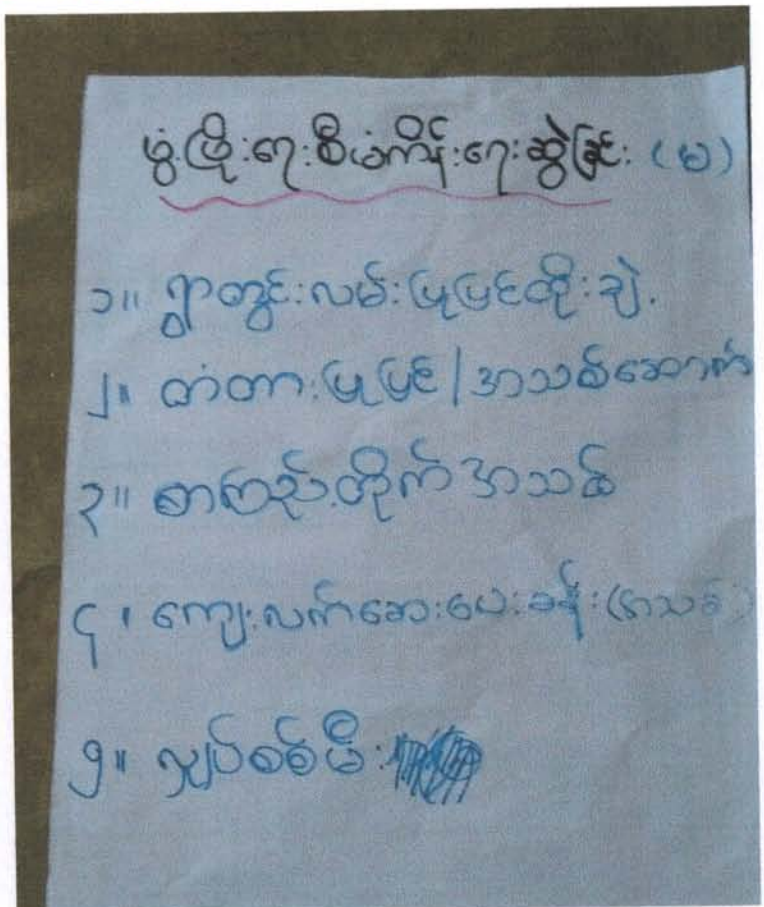 ဖွံ့ဖြိုးရေးစီမံကိန်းရေးဆွဲခြင်း (မ)
၁။ ရွာတွင်းလမ်းပြုပြင်ထိုးချဲ့
၂။ တံတားပြုပြင်/အသစ်ဆောက်
၃။ စာကြည့်တိုက်အသစ်
၄။ ကျေးလက်ဆေးပေးခန်း(အသစ်)
၅။ လျှပ်စစ်မီး